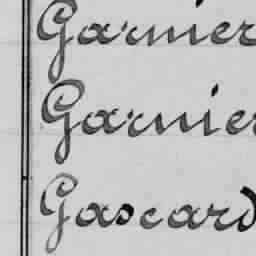 Garnier
Garnier
Gascard